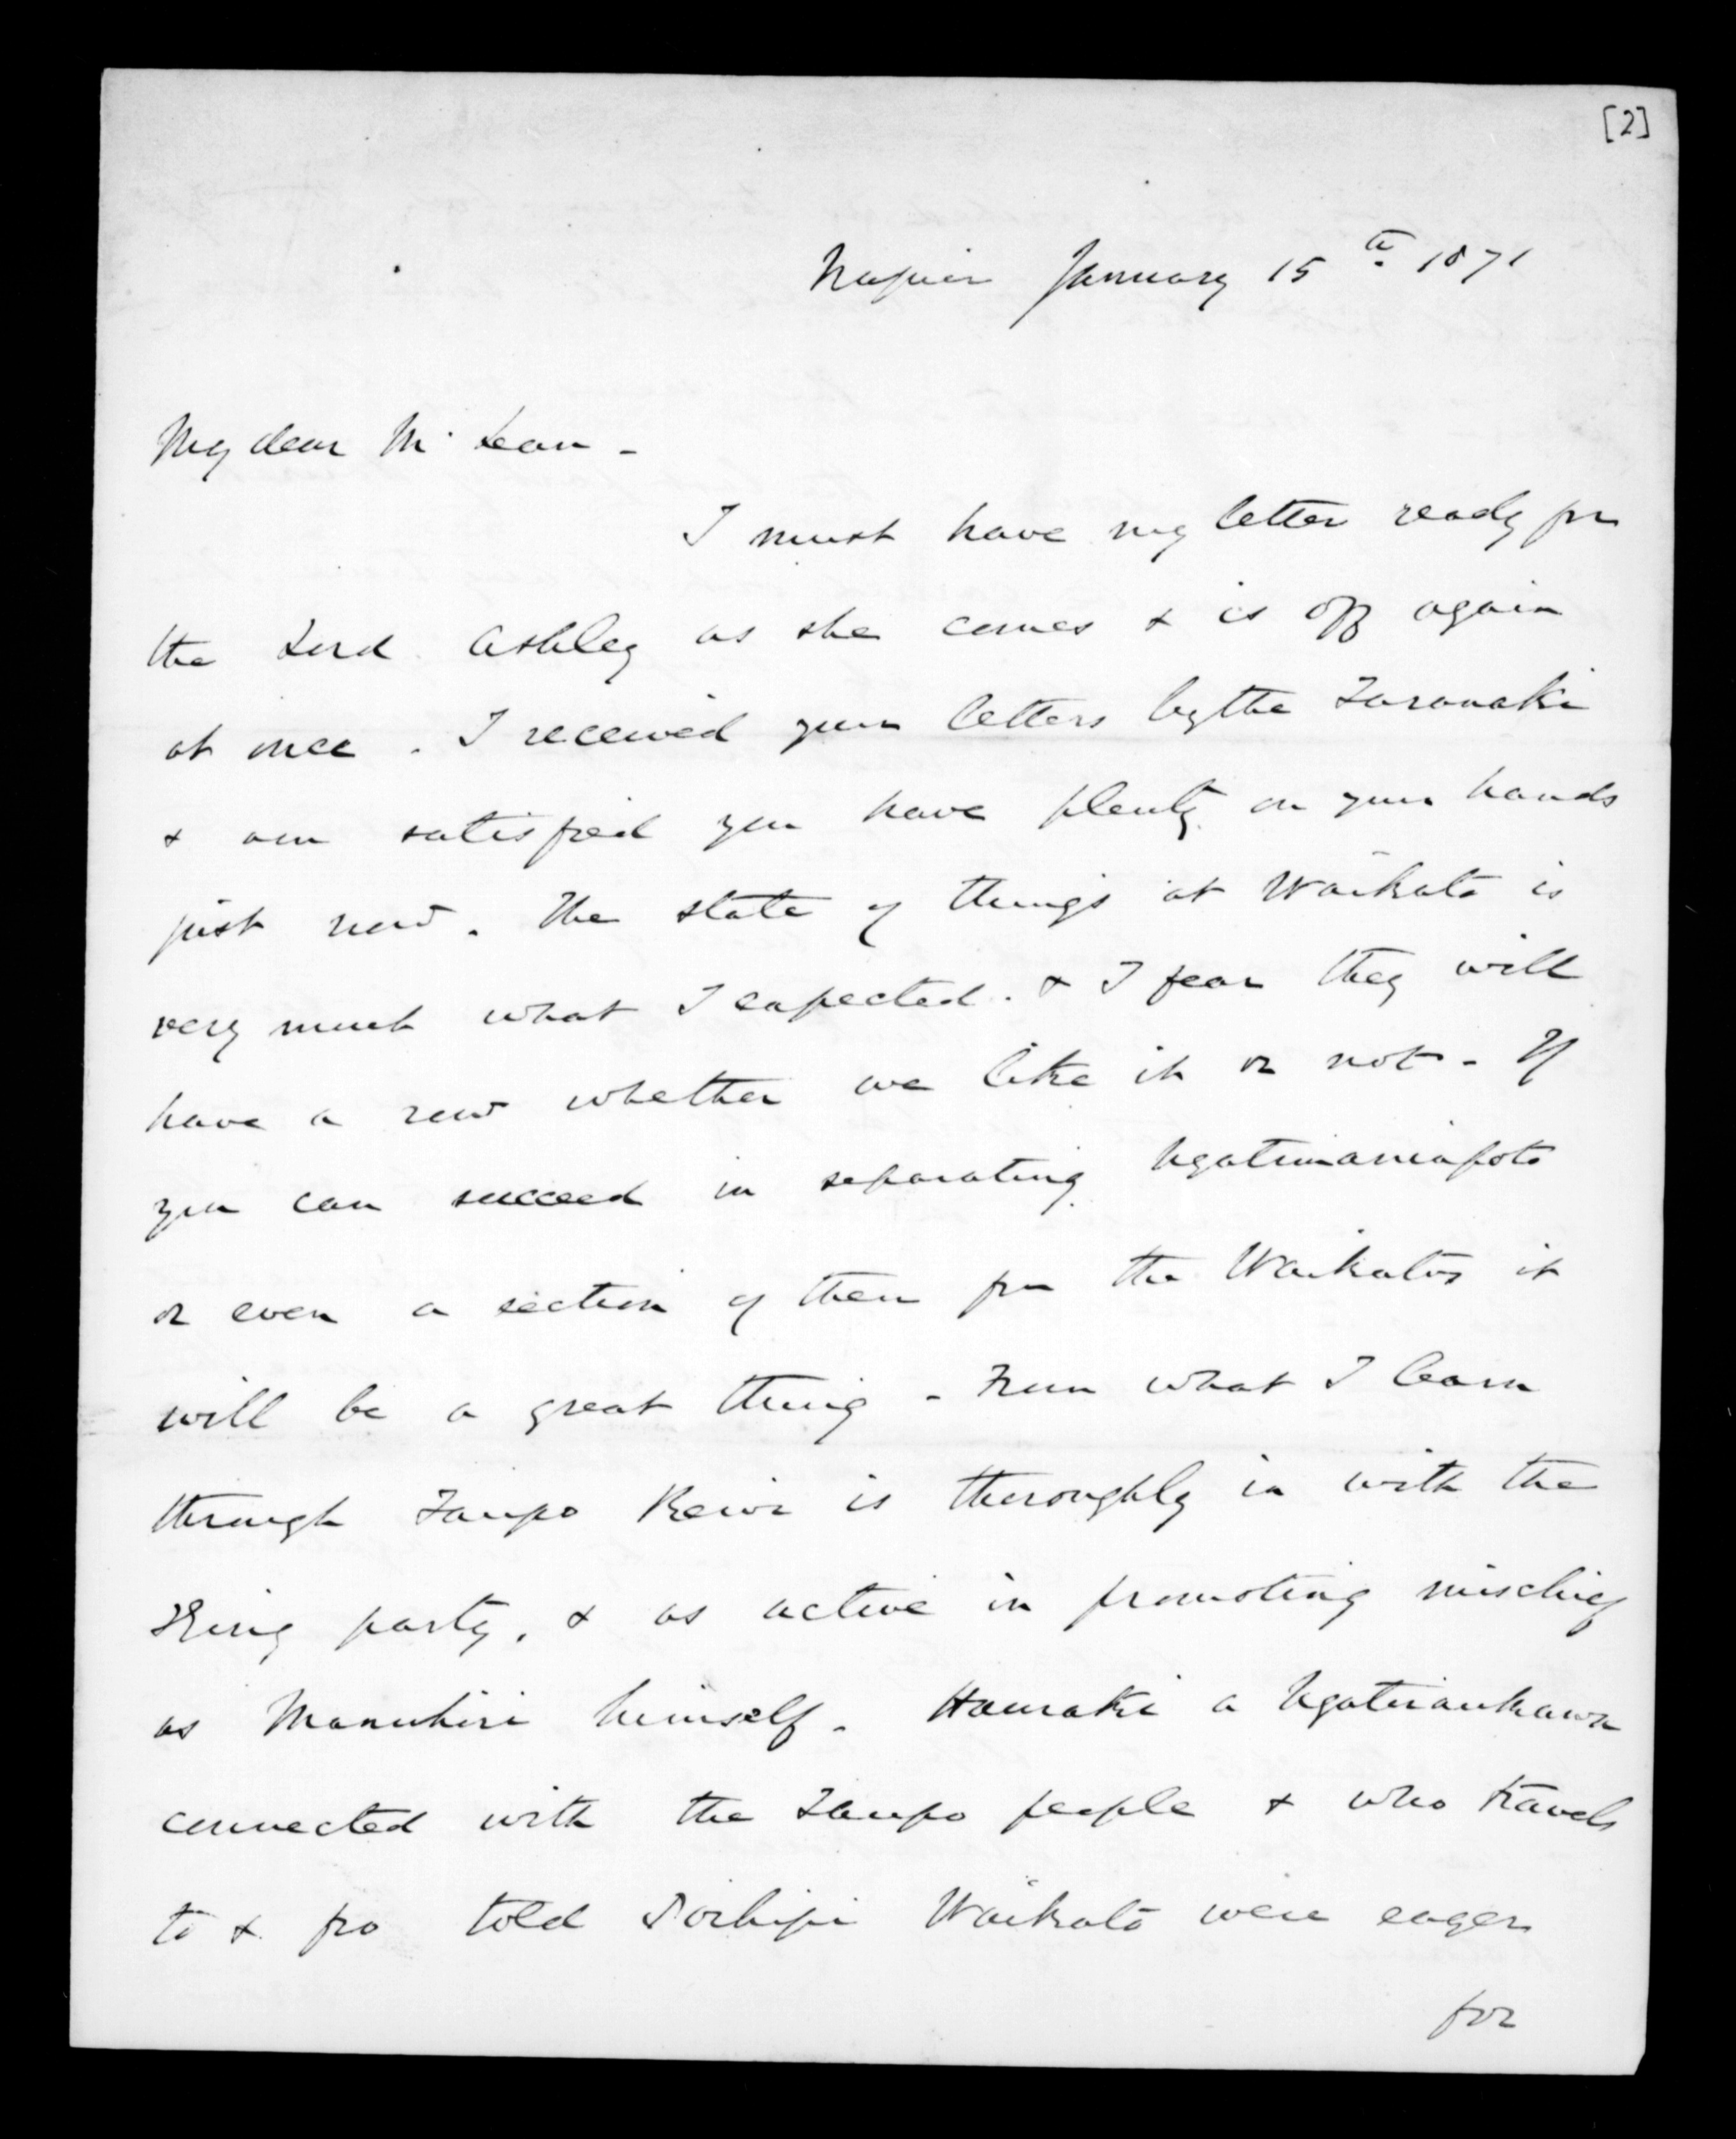 [2]
Napier January 15th 1871
My dear McLean -
I must have my letter ready for
the Lord Ashley as she comes & is off again
at once. I received your letters by the Taranaki
& am satisfied you have plenty on your hands
just now. The state of things at Waikato is
very much what I expected. & I fear they will
have a row whether we like it or not - If
you can succeed in separating Ngatimaniapoto
or even a section of them from the Waikatos it
will be a great thing - From what I learn
through Taupo Rewi is thoroughly in with the
King party, & as active in promoting mischief
as Manuhiri himself. Hauraki a Ngatiraukawa
connected with the Taupo people & who travels
to & fro told Poihipi Waikato were eager
for